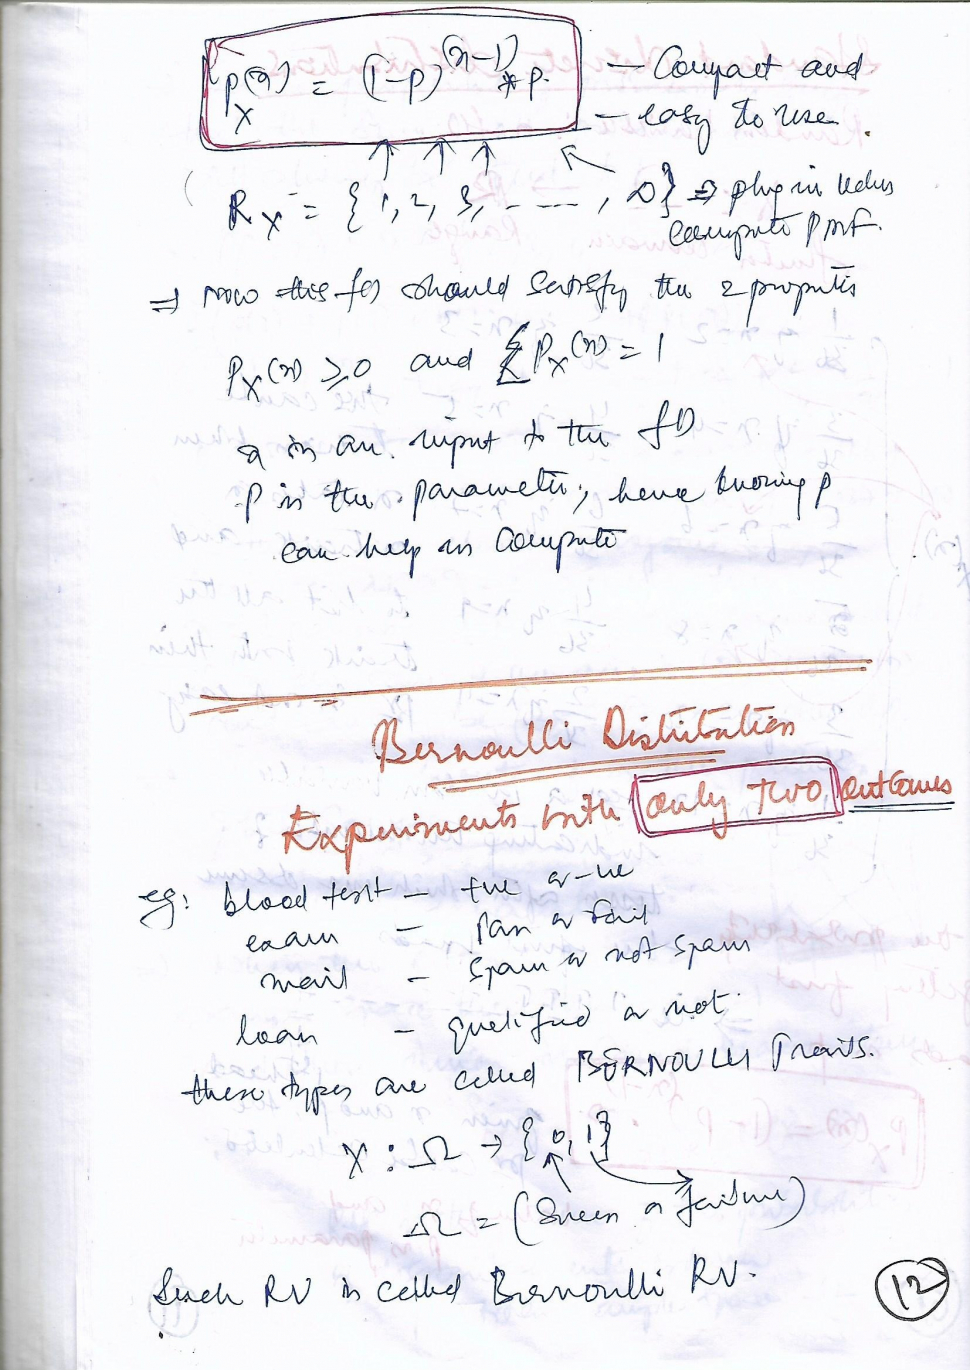 P_X(x) = (1-p)^(x-1) * p. — Compact and
— easy to use.
R_X = { 1, 2, 3, ..... , ∞ } ⇒ plug in values
compute PMF.
⇒ Now this fn should satisfy the 2 proptis
P_X(x) ≥ 0 and Σ P_X(x) = 1
x is an input to the fn
p is the parameter, hence knowing p
can help us compute
Bernoulli Distribution
Experiments with only two outcomes
eg: blood test — +ve or -ve
exam — Pass or fail
mail — Spam or not spam
loan — qualified or not.
these types are called BERNOULLI Trails.
X : Ω → { 0, 1 }
Ω = (Success or failure)
Such RV is called Bernoulli RV.
12